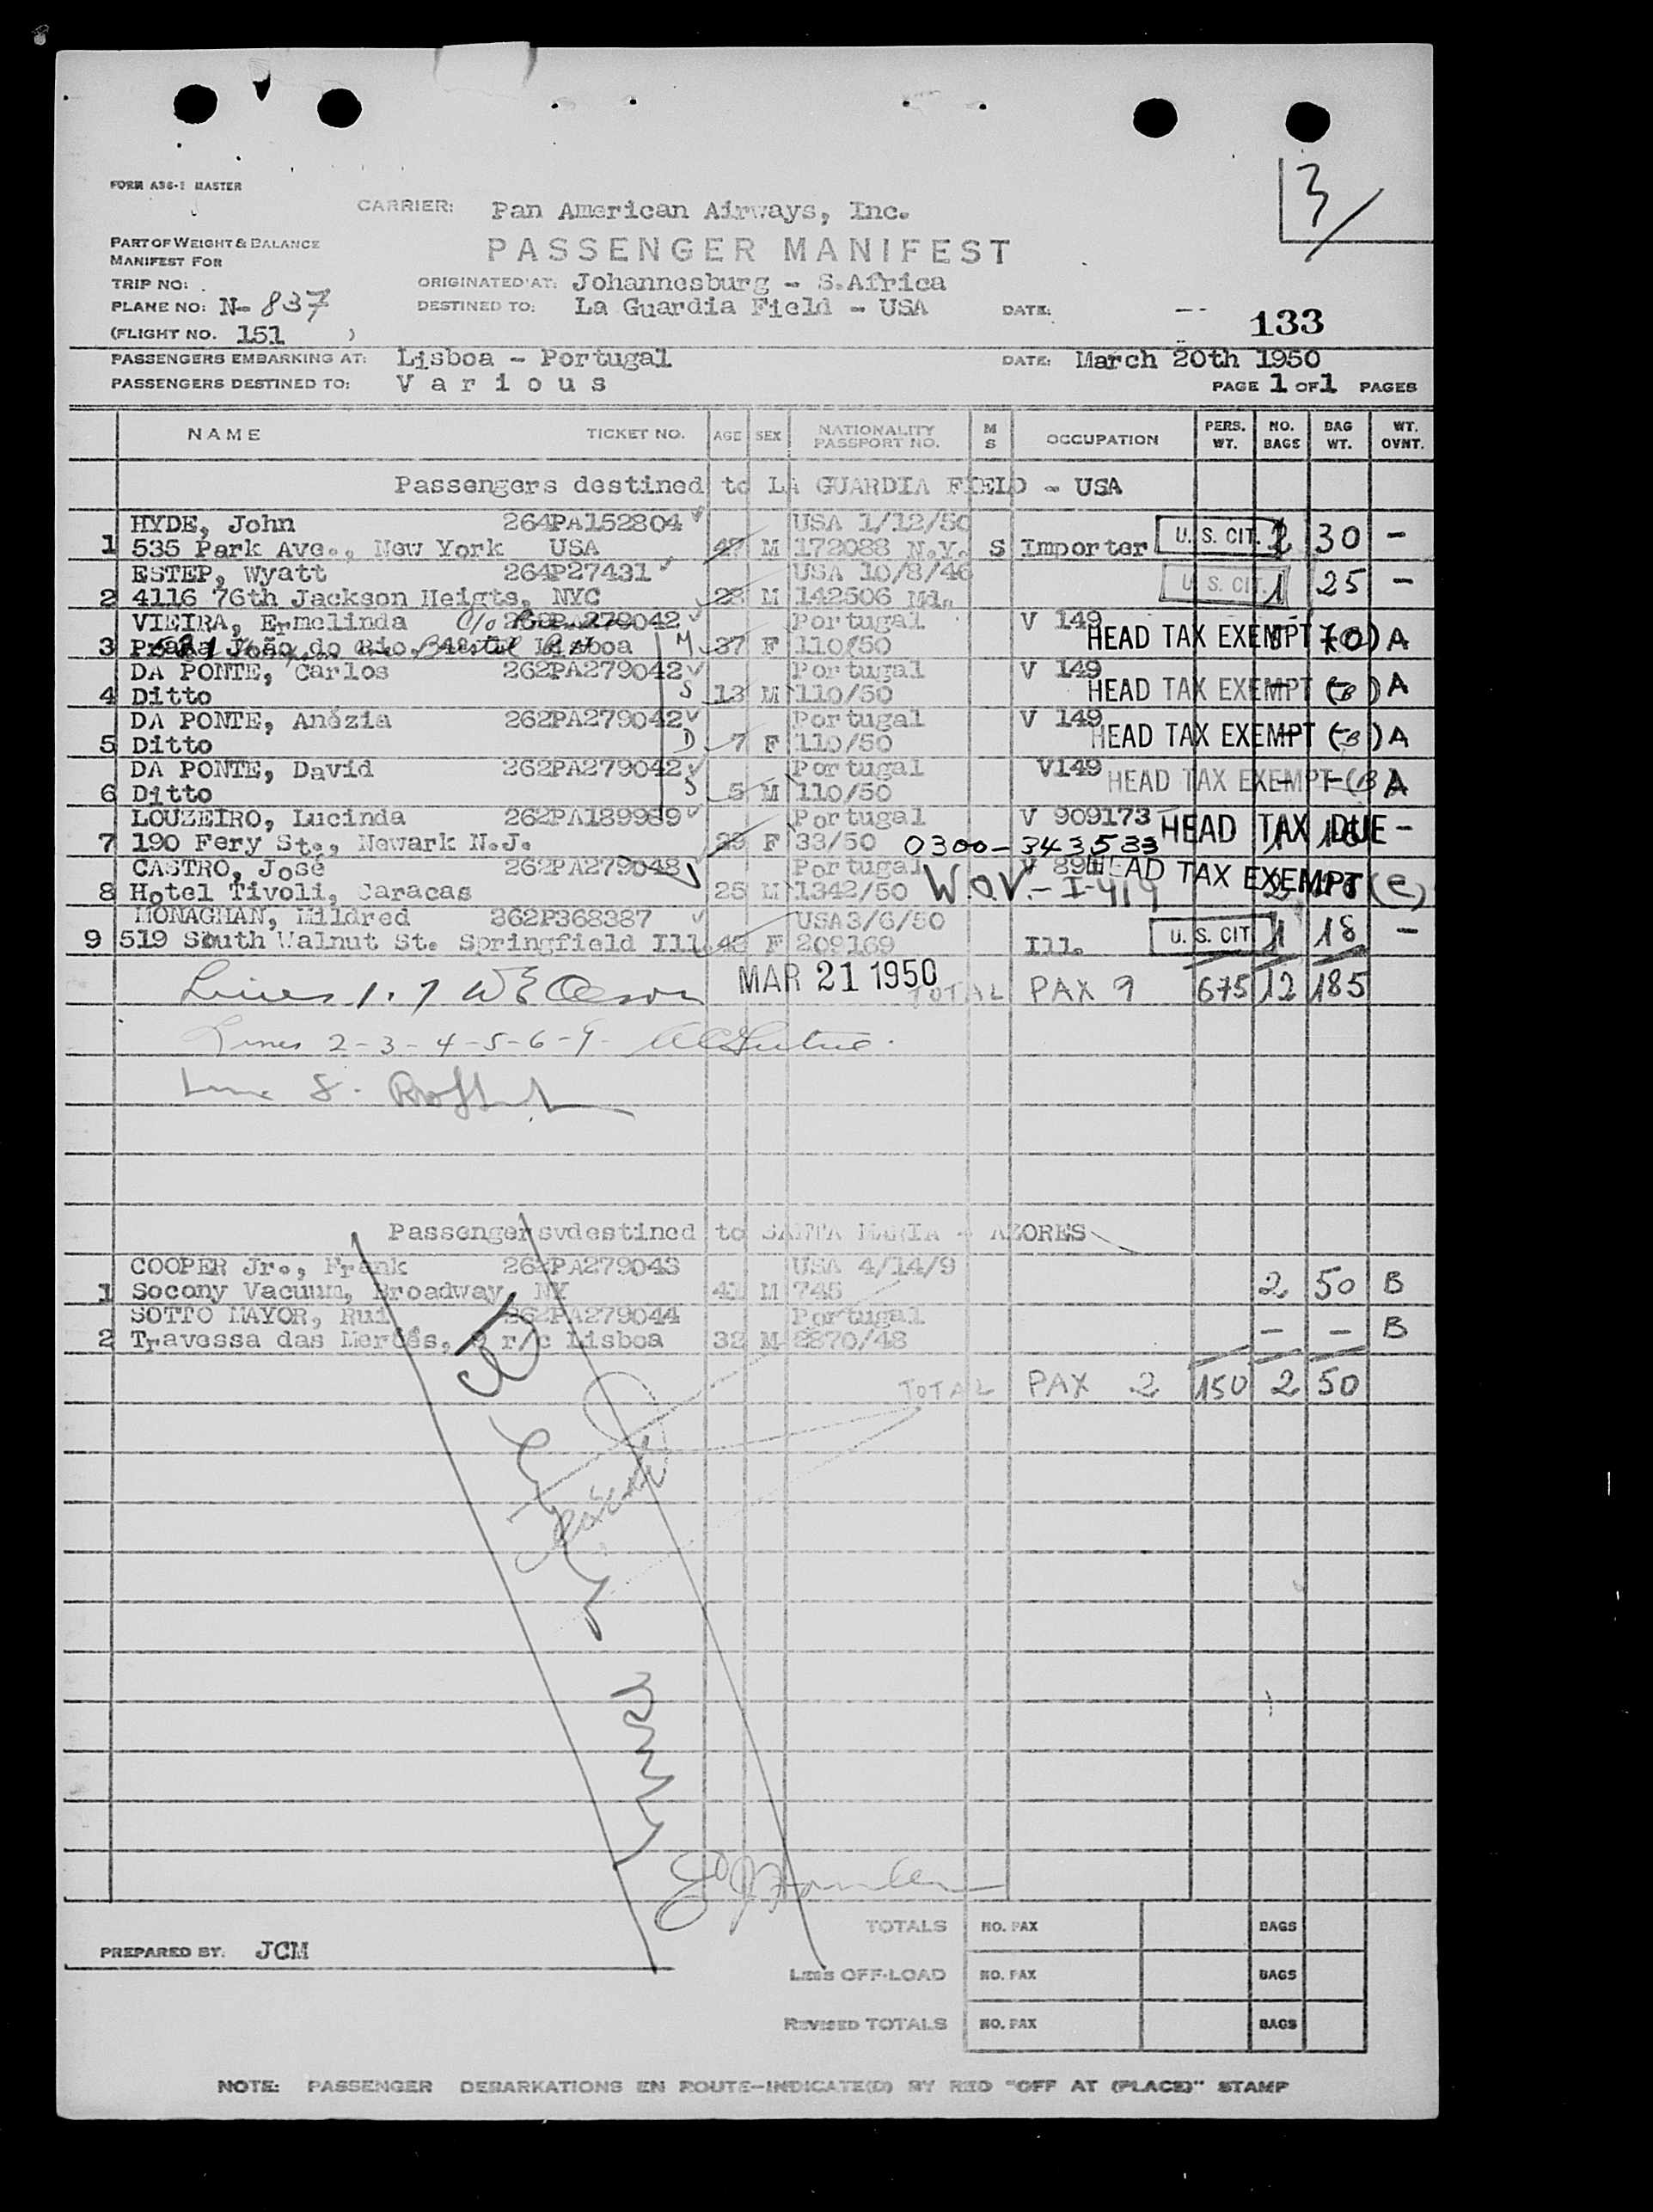 3
FORM A36-1 MASTER
CARRIER: Pan American Airways, Inc.
PART OF WEIGHT & BALANCE
MANIFEST FOR
PASSENGER MANIFEST
TRIP NO:
ORIGINATED AT: Johannesburg - S.Africa
PLANE NO: N-837
DESTINED TO: La Guardia Field - USA DATE: --
133
(FLIGHT NO. 151 )
PASSENGERS EMBARKING AT: Lisboa - Portugal DATE: March 20th 1950
PASSENGERS DESTINED TO: V a r i o u s PAGE 1 OF 1 PAGES
NAME TICKET NO. AGE SEX NATIONALITY PASSPORT NO. M S OCCUPATION PERS. WT. NO. BAGS BAG WT. WT. OVNT.
Passengers destined to LA GUARDIA FIELD - USA
HYDE, John 264PA152804 USA 1/12/50
1 535 Park Ave., New York USA 47 M 172088 N.Y. S Importer U. S. CIT. 2 30 -
ESTEP, Wyatt 264P27431 USA 10/8/46
2 4116 76th Jackson Heigts, NYC 28 M 142506 Md. U. S. CIT. 1 25 -
VIEIRA, Ermelinda C/o 262PA279042 Portugal V 149
3 Praia João do Rio, Lisboa M 37 F 110/50 HEAD TAX EXEMPT A
DA PONTE, Carlos 262PA279042 Portugal V 149
4 Ditto S 13 M 110/50 HEAD TAX EXEMPT (B) A
DA PONTE, Anézia 262PA279042 Portugal V 149
5 Ditto D 7 F 110/50 HEAD TAX EXEMPT (B) A
DA PONTE, David 262PA279042 Portugal V149
6 Ditto S 5 M 110/50 HEAD TAX EXEMPT (B) A
LOUZEIRO, Lucinda 262PA189989 Portugal V 909173
7 190 Fery St., Newark N.J. 29 F 33/50 0300-343533 HEAD TAX DUE -
CASTRO, José 262PA279048 Portugal
8 Hotel Tivoli, Caracas 25 M 1342/50 W.O.V.-I-419 HEAD TAX EXEMPT (C)
MONAGHAN, Mildred 262P368387 USA3/6/50
9 519 South Walnut St. Springfield Ill. 43 F 209169 Ill. U. S. CIT 1 18 -
MAR 21 1950 TOTAL PAX 9 675 12 185
Lines 1.7 W E Olson
Lines 2-3-4-5-6-9
Line 8.
Passengersvdestined to SANTA MARIA - AZORES
COOPER Jr., Frank 262PA279043 USA 4/14/9
1 Socony Vacuum, Broadway, NY 41 M 745 2 50 B
SOTTO MAYOR, Rui 262PA279044 Portugal
2 Travessa das Mercês, 9 r/c Lisboa 32 M 2870/48 - - B
TOTAL PAX 2 150 2 50
TOTALS NO. PAX BAGS
PREPARED BY: JCM
LESS OFF-LOAD NO. PAX BAGS
REVISED TOTALS NO. PAX BAGS
NOTE: PASSENGER DEBARKATIONS EN ROUTE-INDICATE(D) BY RED "OFF AT (PLACE)" STAMP